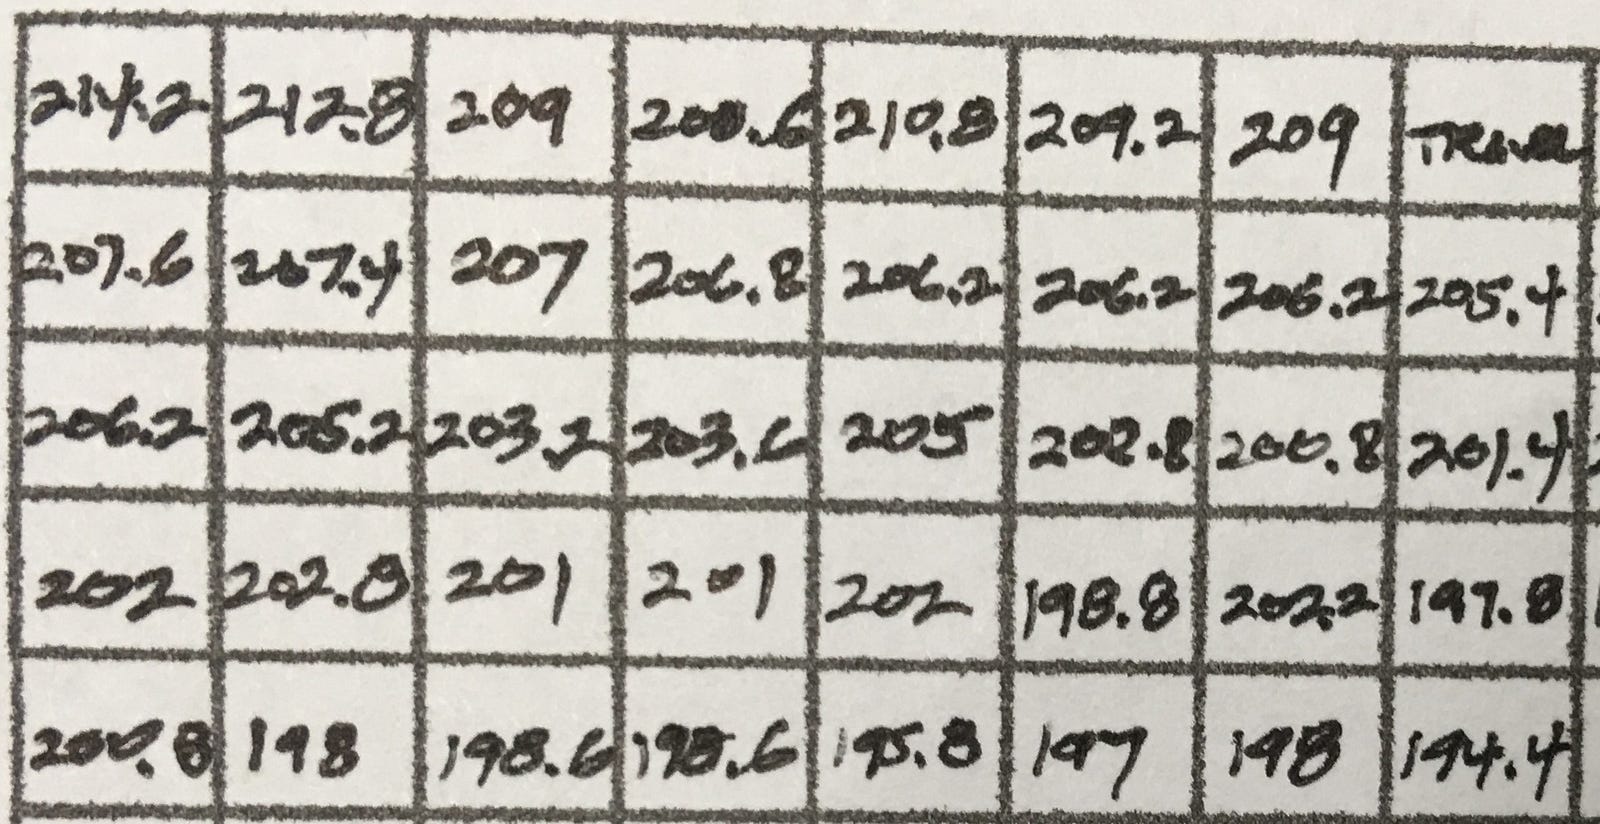 214.2 212.8 209 208.6 210.8 209.2 209 TRAVEL
207.6 207.4 207 206.8 206.2 206.2 206.2 205.4
206.2 205.2 203.2 203.6 205 202.8 200.8 201.4
202 202.8 201 201 202 198.8 202.2 197.8
200.8 198 198.6 198.6 195.8 197 198 194.4